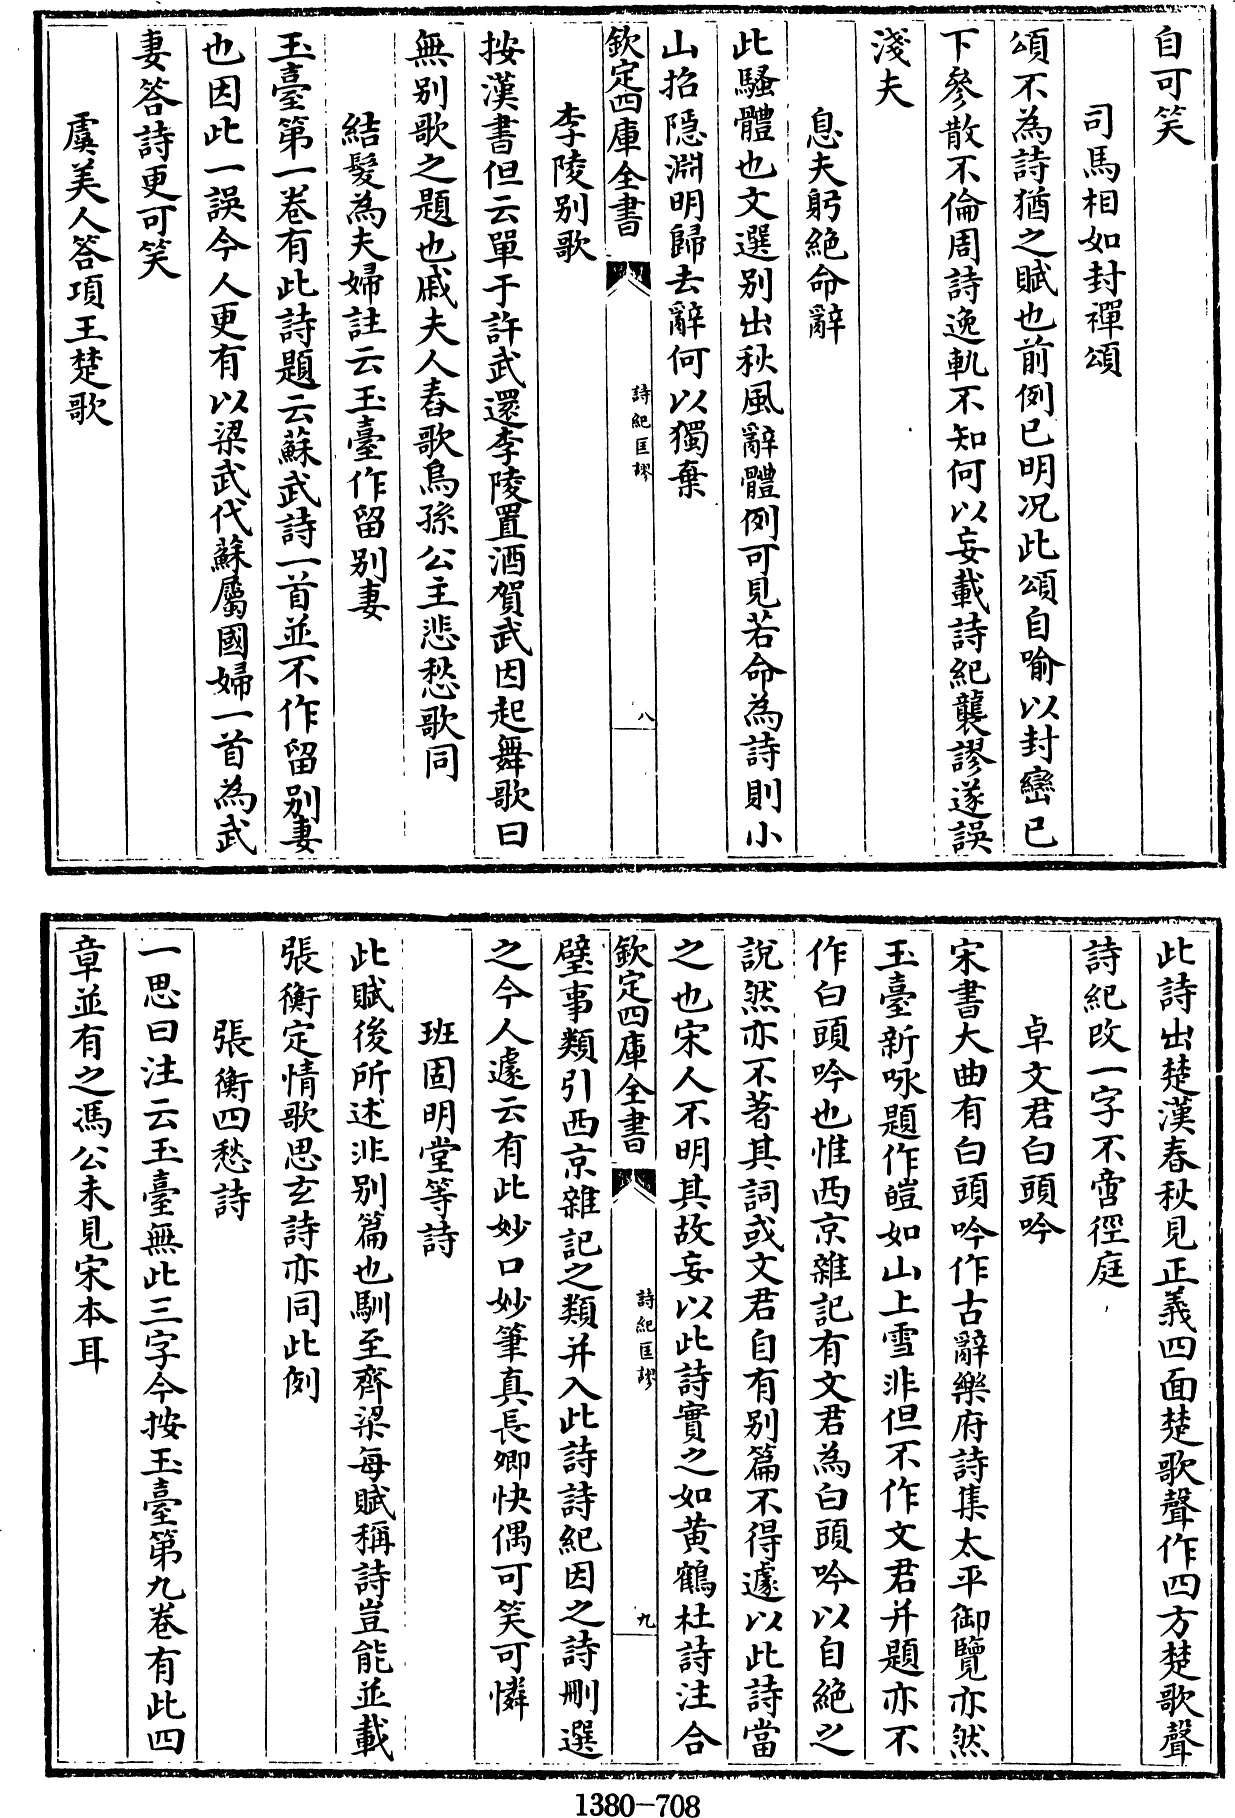 自可笑
司馬相如封禪頌
頌不為詩猶之賦也前例已明况此頌自喻以封巒已
下參散不倫周詩逸軌不知何以妄載詩紀襲謬遂誤
淺夫
息夫躬絶命辭
此騷體也文選别出秋風辭體例可見若命為詩則小
山招隠淵明歸去辭何以獨棄
欽定四庫全書
詩紀匡謬
八
李陵别歌
按漢書但云單于許武還李陵置酒賀武因起舞歌曰
無别歌之題也戚夫人舂歌烏孫公主悲愁歌同
結髮為夫婦註云玉臺作留别妻
玉臺第一卷有此詩題云蘇武詩一首並不作留别妻
也因此一誤今人更有以梁武代蘇屬國婦一首為武
妻答詩更可笑
虞美人答項王楚歌
此詩出楚漢春秋見正義四面楚歌聲作四方楚歌聲
詩紀改一字不啻徑庭
卓文君白頭吟
宋書大曲有白頭吟作古辭樂府詩集太平御覽亦然
玉臺新咏題作皚如山上雪非但不作文君并題亦不
作白頭吟也惟西京雜記有文君為白頭吟以自絶之
說然亦不著其詞或文君自有别篇不得遽以此詩當
之也宋人不明其故妄以此詩實之如黄鶴杜詩注合
欽定四庫全書
詩紀匡謬
九
璧事類引西京雜記之類并入此詩詩紀因之詩刪選
之今人遽云有此妙口妙筆真長卿快偶可笑可憐
班固明堂等詩
此賦後所述非别篇也馴至齊梁每賦稱詩豈能並載
張衡定情歌思玄詩亦同此例
張衡四愁詩
一思曰注云玉臺無此三字今按玉臺第九卷有此四
章並有之馮公未見宋本耳
1380-708